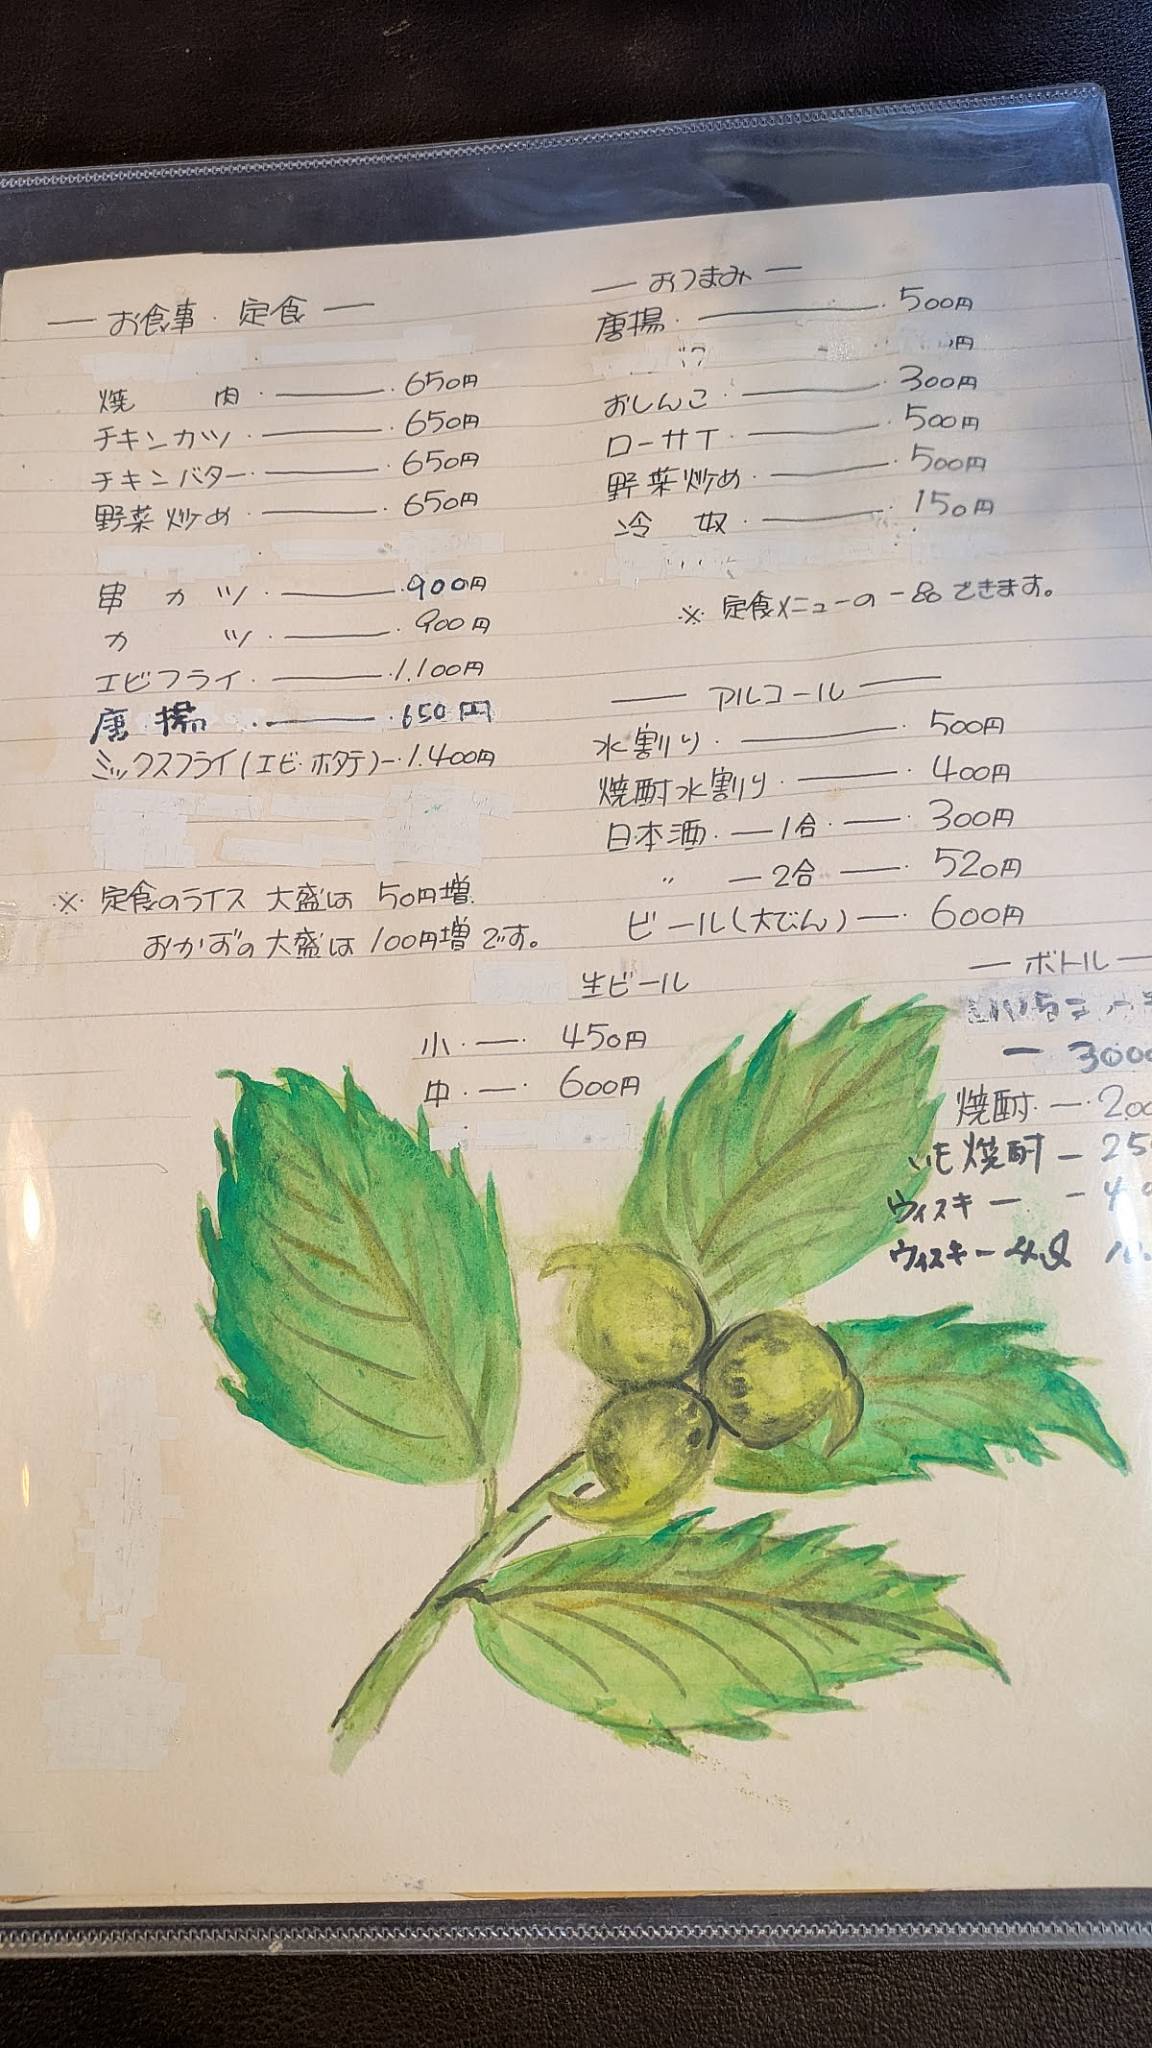 ― お食事・定食 ―
焼 肉 ・――・650円
チキンカツ ・――・650円
チキンバター・――・650円
野菜炒め ・――・650円
串カツ ・――・900円
カ ツ ・――・900円
エビフライ・――・1.100円
唐揚 ・――・650円
ミックスフライ(エビ・ホタテ)―・1.400円
※ 定食のライス 大盛は 50円増
おかずの大盛は 100円増です。
― おつまみ ―
唐揚・――・500円
円
おしんこ・――・300円
ローサイ・――・500円
野菜炒め・――・500円
冷 奴・――・150円
※ 定食メニューの一品できます。
― アルコール ―
水割り・――・500円
焼酎水割り・――・400円
日本酒・―1合・―・300円
〃 ―2合 ―・520円
ビール(大びん)―・600円
生ビール
小・―・450円
中・―・600円
― ボトル ―
いいちこ
― 3000
焼酎・―・200
いも焼酎 ― 25
ウィスキー ―
ウィスキー